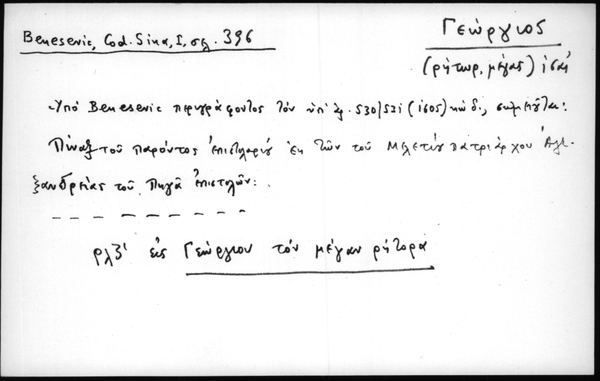 Benesevic, Cod. Sina, I, σελ. 396
Γεώργιος
(ρήτωρ, μέγας) ις αἰ
Υπό Benesevic περιγράφοντος τόν ὑπ' ἀρ. 530/521 (1605) κώδ., σημειοῦται:
Πίναξ τοῦ παρόντος ἐπιστολαρίου ἐκ τῶν τοῦ Μελετίου πατριάρχου Ἀλε-
ξανδρείας τοῦ Πηγᾶ ἐπιστολῶν:
ρλζ' εἰς Γεώργιον τόν μέγαν ρήτορα